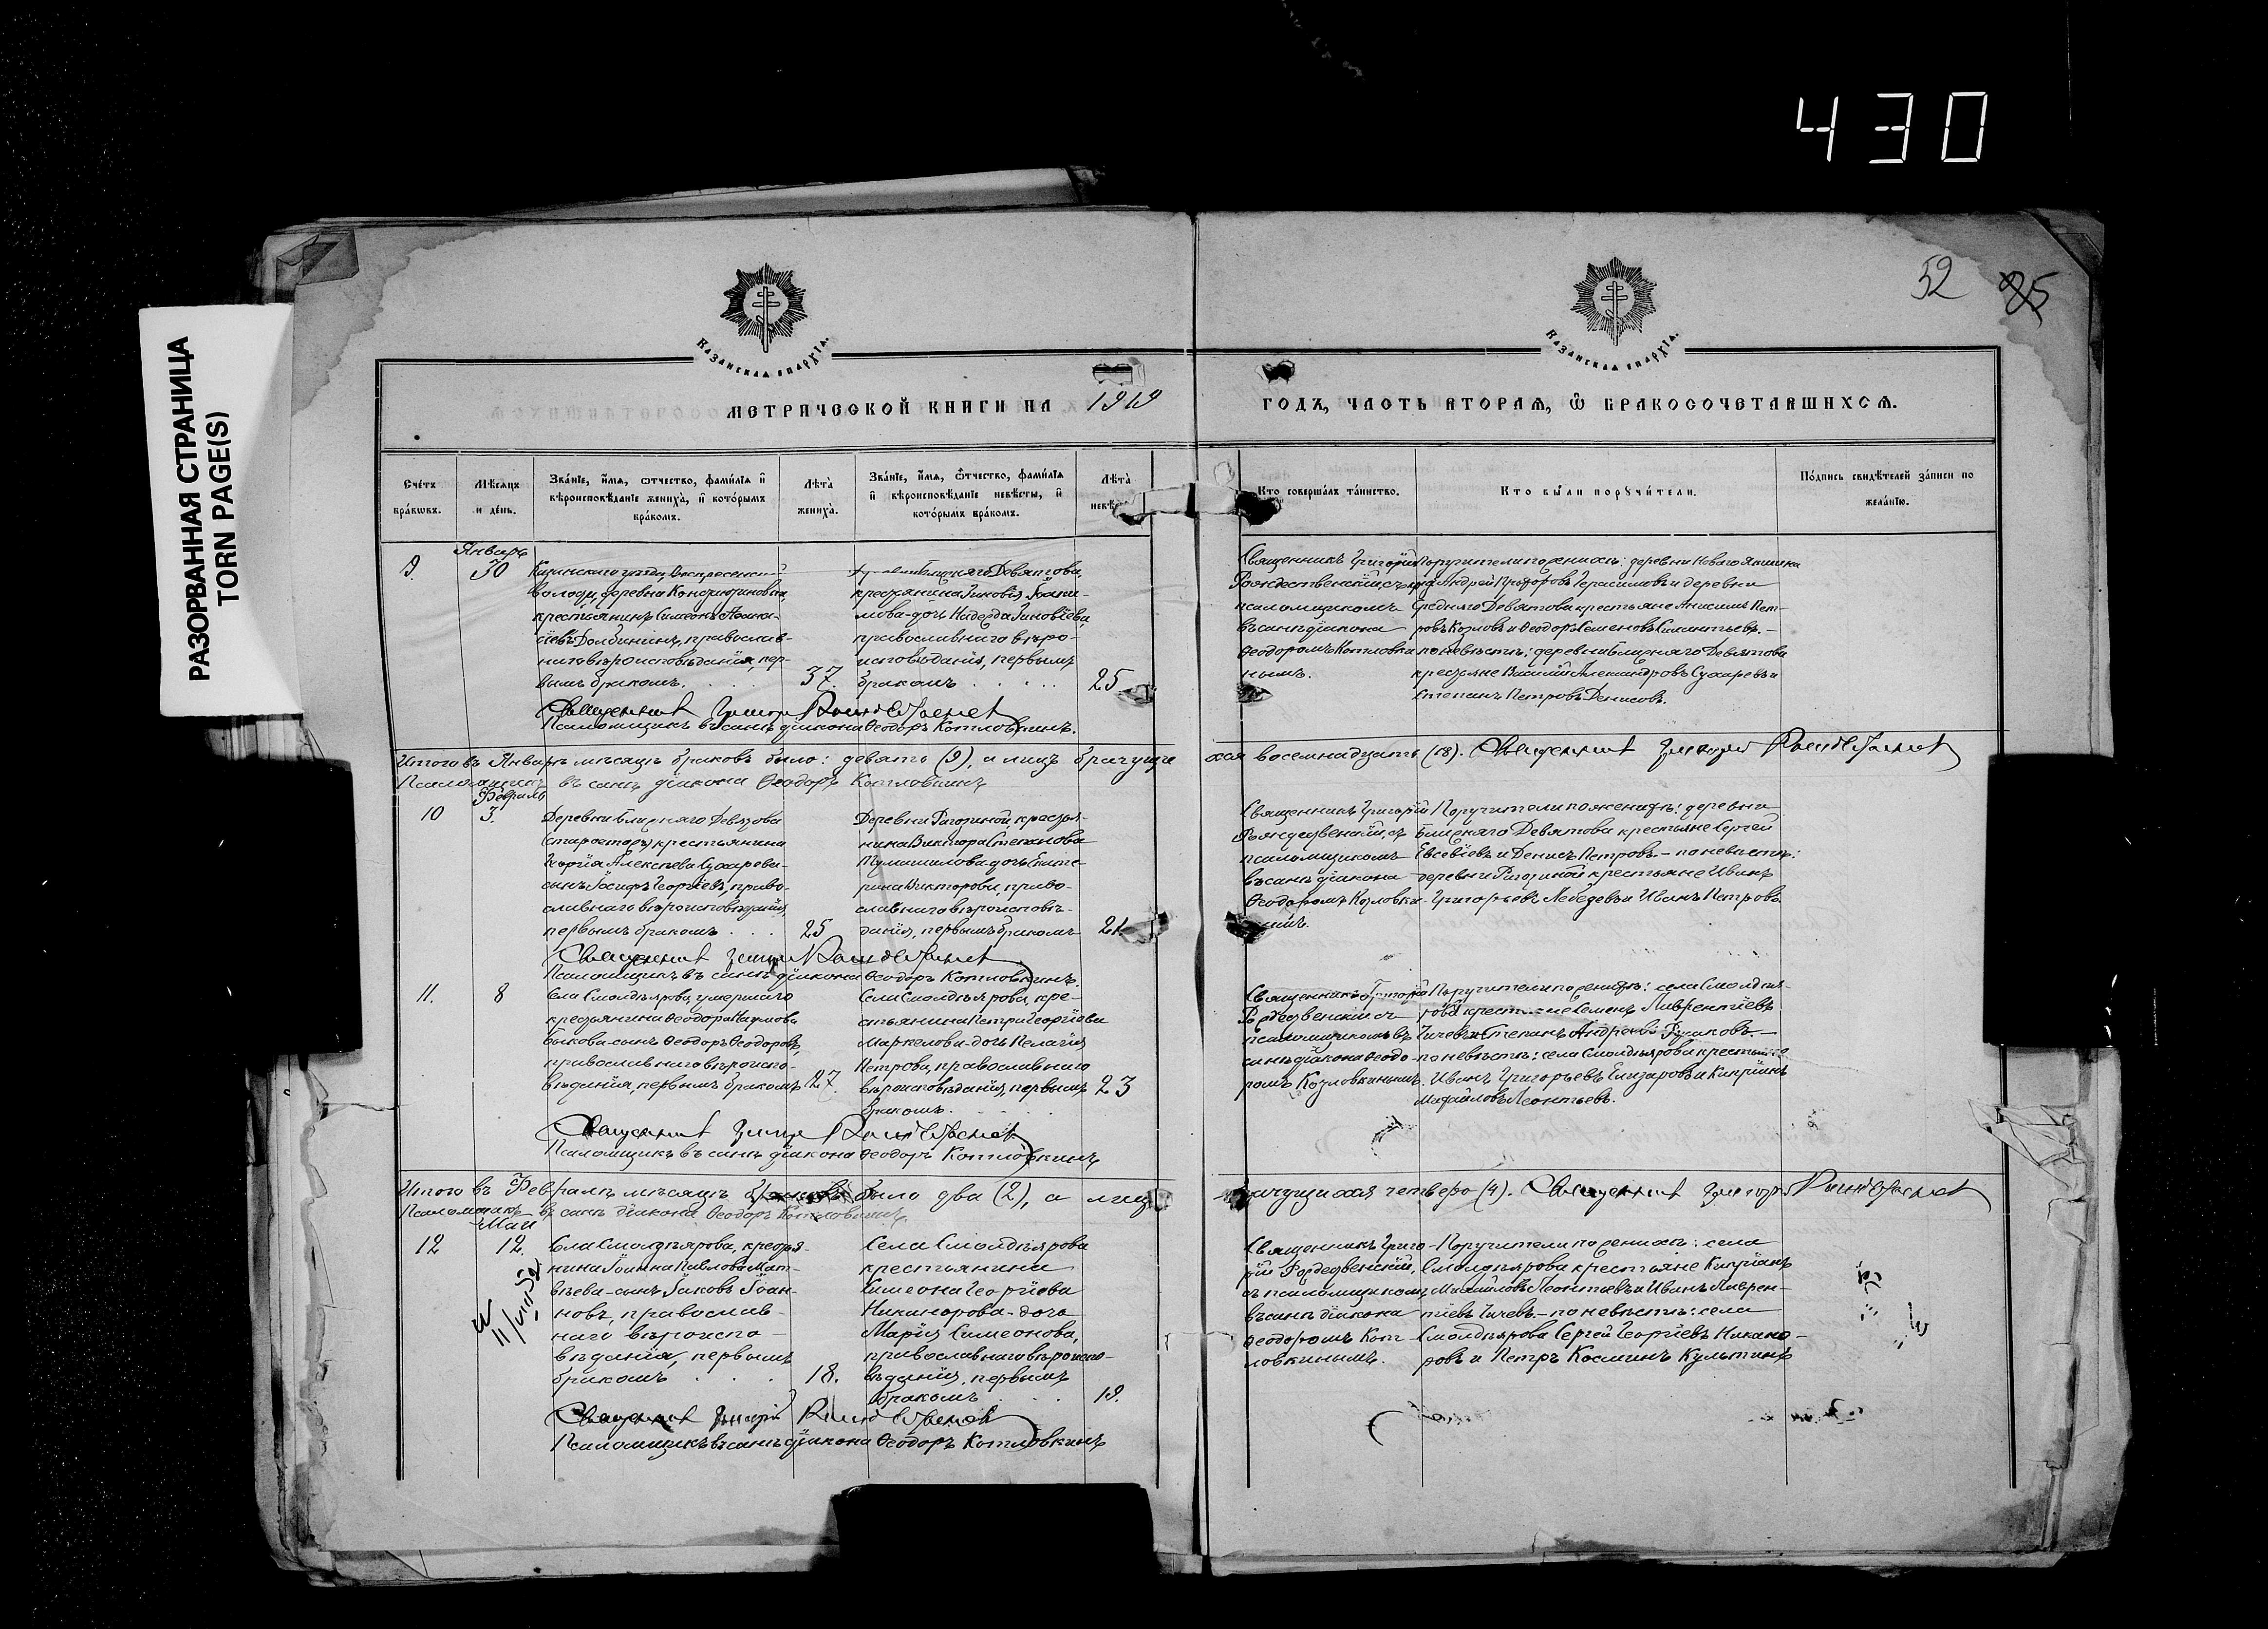 430
РАЗОРВАННАЯ СТРАНИЦА
TORN PAGE(S)
52 85
Казанская епархїа.
Казанская епархїа.
МЕТРИЧЕСКОЙ КНИГИ НА 1919 ГОДЪ, ЧАСТЬ ВТОРАЯ, Ѡ БРАКОСОЧЕТАВШИХСЯ.
Счетъ браковъ.
Мѣсяцъ и день.
Званїе, имя, отчество, фамилїя и
вѣроисповѣданїе жениха, и которымъ
бракомъ.
Лѣта
жениха.
Званїе, имя, ѿтчество, фамилїя
и вѣроисповѣданїе невѣсты, и
которымъ бракомъ.
Лѣта
невѣ
Кто совершалъ таинство.
Кто были поручители.
Подпись свидѣтелей записи по
желанїю.
9.
Январь
30
волости, деревни
крестьянинъ Симеонъ
православ-
наго вѣроисповѣданія, пер-
вымъ бракомъ.
37.
Девятова,
крестьянина Зиновія
дочь Надежда Зиновіева
православнаго вѣро-
исповѣданія, первымъ
бракомъ
25
Священникъ Григорій
Рождественскій, съ
псаломщикомъ
въ санѣ діакона
Ѳеодоромъ Котловки-
нымъ.
Поручители по женихѣ: деревни
Андрей Герасимовъ и деревни
Средняго Девятова крестьяне Анисимъ Пет-
ровъ Козловъ и Ѳеодоръ Семеновъ
по невѣстѣ: деревни Ближняго Девятова
крестьяне Василій Александровъ Сухаревъ и
Степанъ Петровъ Денисовъ.
Священникъ Григорій Рождественскій
Псаломщикъ въ санѣ діакона Ѳеодоръ Котловкинъ.
Итого въ Январѣ мѣсяцѣ браковъ было: девять (9), а лицъ брачущи
хся восемнадцать (18). Священникъ Григорій Рождественскій
Псаломщикъ въ санѣ діакона Ѳеодоръ Котловкинъ
10
Февраль
3.
Деревни Ближняго Девятова
крестьянина
Георгія Алексѣева Сухарева
сынъ Іосифъ Георгіевъ, право-
славнаго вѣроисповѣданія,
первымъ бракомъ
25
Деревни Рагозиной крестья-
нина Виктора Степанова
дочь Екате-
рина Викторова, право-
славнаго вѣроисповѣ-
данія, первымъ бракомъ
21
Священникъ Григорій
Рождественскій, съ
псаломщикомъ
въ санѣ діакона
Ѳеодоромъ Котловки-
нымъ.
Поручители по женихѣ: деревни
Ближняго Девятова крестьяне Сергей
Евсевіевъ и Денисъ Петровъ. – по невѣстѣ:
деревни Рагозиной крестьяне Иванъ
Григорьевъ Лебедевъ и Иванъ Петровъ.
Священникъ Григорій Рождественскій
Псаломщикъ въ санѣ діакона Ѳеодоръ Котловкинъ.
11.
8
Села Смолдеярова, умершаго
крестьянина Ѳеодора Наумова
Быкова сынъ Ѳеодоръ Ѳеодоровъ,
православнаго вѣроиспо-
вѣданія, первымъ бракомъ
27.
Села Смолдеярова, кре-
стьянина Петра Георгіева
Маркелова дочь Пелагія
Петрова, православнаго
вѣроисповѣданія, первымъ
бракомъ.
23
Священникъ Григорій
Рождественскій съ
псаломщикомъ въ
санѣ діакона Ѳеодо-
ромъ Котловкинымъ.
Поручители по женихѣ: села Смолдея-
рова крестьяне Семенъ Лаврентіевъ
Чичевъ и Степанъ Андреевъ
по невѣстѣ: села Смолдеярова крестьяне
Иванъ Григорьевъ Елизаровъ и Кипріянъ
Михайловъ Леонтьевъ.
Священникъ Григорій Рождественскій
Псаломщикъ въ санѣ діакона Ѳеодоръ Котловкинъ
Итого въ Февралѣ мѣсяцѣ браковъ было два (2), а лицъ
брачущихся четверо (4). Священникъ Григорій Рождественскій
Псаломщикъ въ санѣ діакона Ѳеодоръ Котловкинъ
12
Мая
12.
Села Смолдеярова, крестья-
нина Іоанна Павлова Мат-
вѣева сынъ Іаковъ Іоан-
новъ, православ-
наго вѣроиспо-
вѣданія, первымъ
бракомъ
18.
Села Смолдеярова
крестьянина
Симеона Георгіева
Никанорова дочь
Марія Симеонова,
православнаго вѣроиспо-
вѣданія, первымъ
бракомъ
19.
Священникъ Григо-
рій Рождественскій,
съ псаломщикомъ
въ санѣ діакона
Ѳеодоромъ Кот-
ловкинымъ.
Поручители по женихѣ: села
Смолдеярова крестьяне Кипріянъ
Михайловъ Леонтьевъ и Иванъ Лаврен-
тіевъ Чичевъ. – по невѣстѣ: села
Смолдеярова Сергей Георгіевъ Никано-
ровъ и Петръ Косминъ Культинъ
Священникъ Григорій Рождественскій
Псаломщикъ въ санѣ діакона Ѳеодоръ Котловкинъ